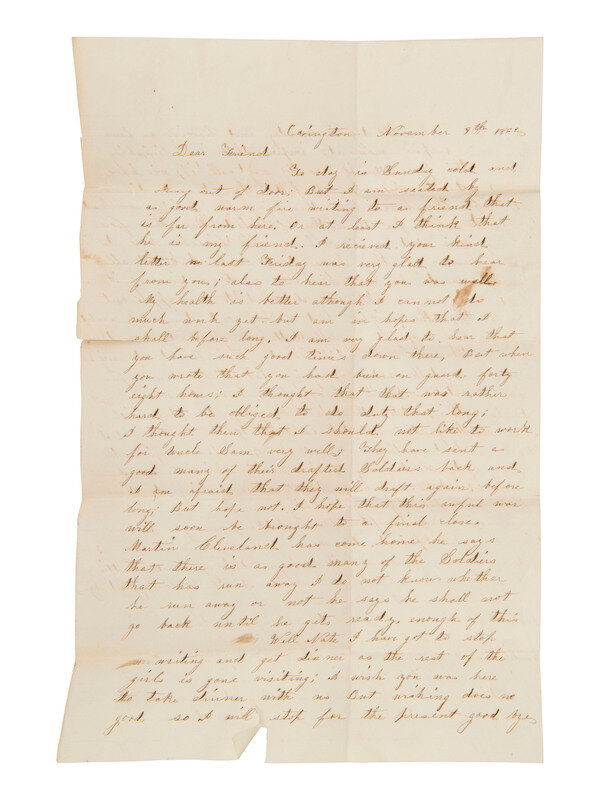 Covington November 8th
Dear Friend
To day is Sunday cold and
out of door; But I am seated by
a good warm fire writing to a friend that
is far from here. Or at least I think that
he is my friend. I recieved your kind
letter last Friday was very glad to hear
from you; also to hear that you was well.
My health is better athough I can not do
much work yet but am in hopes that I
shall before long. I am very glad to hear that
you have such good times down there, But when
you wrote that you had been on guard forty
eight hours; I thought that that was rather
hard to be obliged to do duty that long;
I thought then that I should not like to work
for Uncle Sam very well; They have sent a
good many of their drafted Soldiers back and
I am afraid that they will draft again before
long; But hope not. I hope that this awful war
will soon be brought to a final close.
Martin Cleveland has come home he says
that there is a good many of the Soldiers
that has run away I do not know whether
he run away or not he says he shall not
go back until he gets ready. enough of this
Well Nate I have got to stop
writing and get dinner as the rest of the
girls is gone visiting; I wish you was here
to take dinner with us But wishing does no
good so I will stop for the present good bye